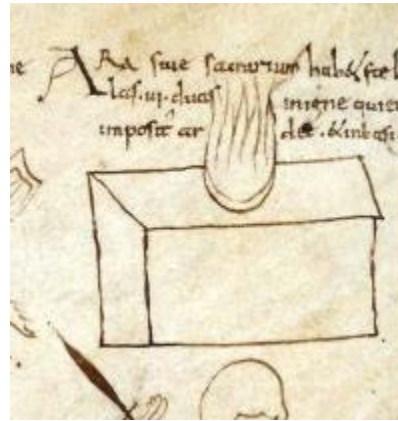 ne ARa siue sacrarium hab& stel
duas inigne quiei
imposit' ar det . & inbasi